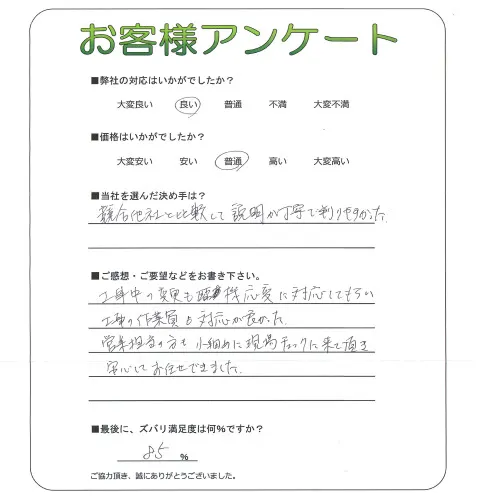 お客様アンケート
■弊社の対応はいかがでしたか？
大変良い 良い 普通 不満 大変不満
■価格はいかがでしたか？
大変安い 安い 普通 高い 大変高い
■当社を選んだ決め手は？
競合他社と比較して説明が丁寧で判りやすかった
■ご感想・ご要望などをお書き下さい。
工事中の変更も臨機応変に対応してもらい
工事の作業員も対応が良かった
営業担当の方も小細めに現場チェックに来て頂き
安心してお任せできました。
■最後に、ズバリ満足度は何%ですか？
85 %
ご協力頂き、誠にありがとうございました。